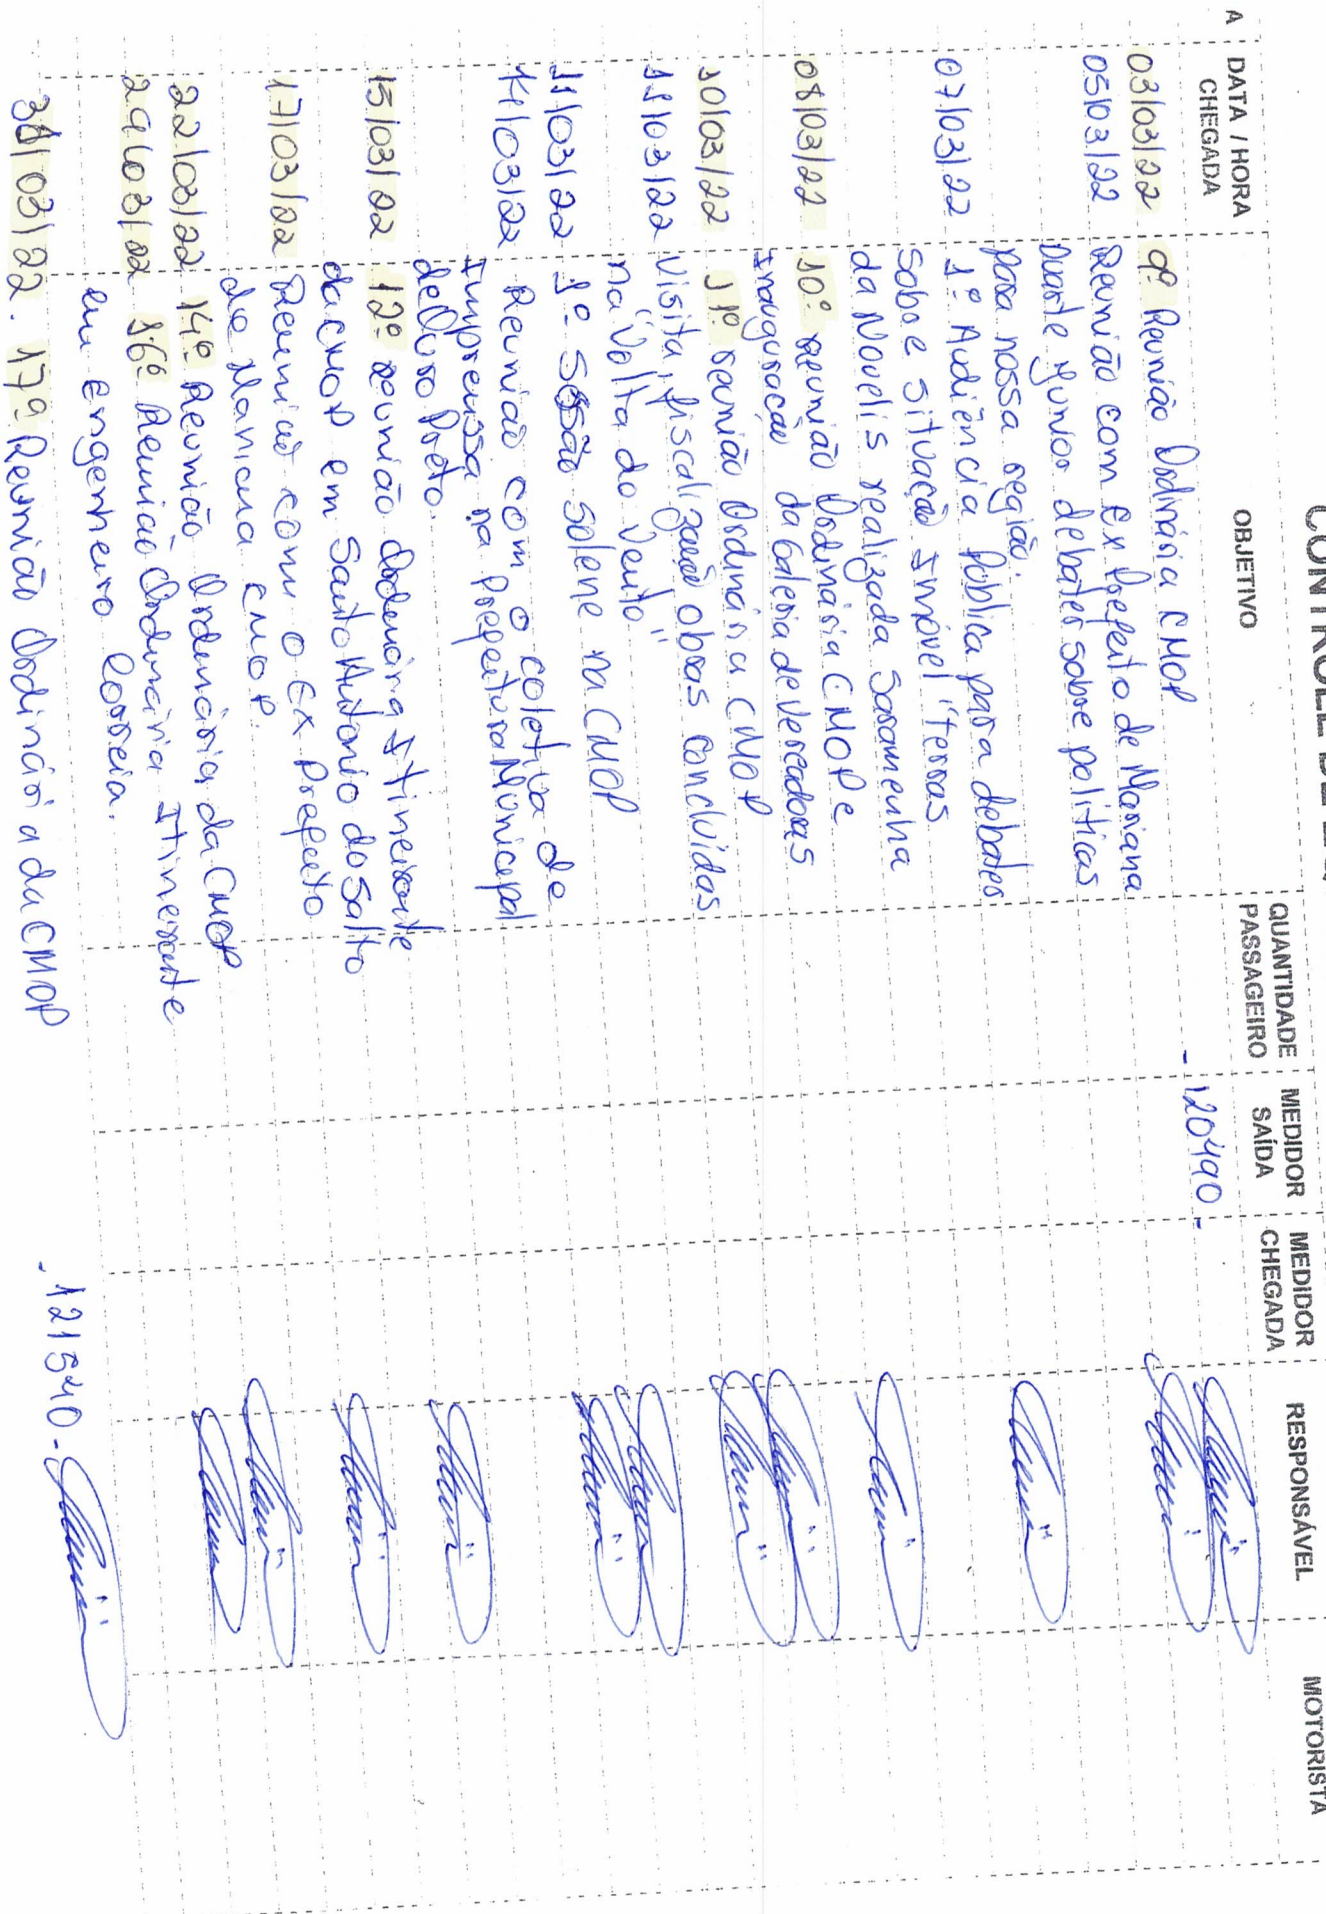 CONTROLE DE
A DATA / HORA CHEGADA OBJETIVO QUANTIDADE PASSAGEIRO MEDIDOR SAÍDA MEDIDOR CHEGADA RESPONSÁVEL MOTORISTA
03/03/22 9º Reunião Ordinária CMOP - 120490 -
05/03/22 Reunião com Ex Prefeito de Mariana
Duarte Junior debates sobre políticas
para nossa região.
07/03/22 1º Audiência Pública para debates
sobre situação Imóvel "terras
da Novelis realizada Saramenha
08/03/22 10º reunião Ordinária CMOP e
Inauguração da Galeria de Vereadoras
10/03/22 11º reunião Ordinária CMOP
11/03/22 Visita, fiscalização obras concluidas
na "Volta do Vento"
11/03/22 1º Sessão Solene na CMOP
14/03/22 Reunião com o coletiva de
Imprenssa na Prefeitura Municipal
de Ouro Preto.
15/03/22 12º reunião Ordinária Itinerante
da CMOP em Santo Antonio do Salto
17/03/22 Reunião com o Ex Prefeito
de Mariana CMOP.
22/03/22 14º Reunião Ordinária da CMOP
29/03/22 16º Reunião Ordinária Itinerante
em Engenheiro Correia.
31/03/22. 17º Reunião Ordinária da CMOP - 121540 -